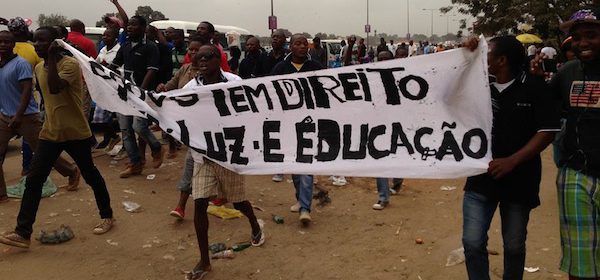 TEM DIREITO
LUZ-E ÉDUCAÇÃO